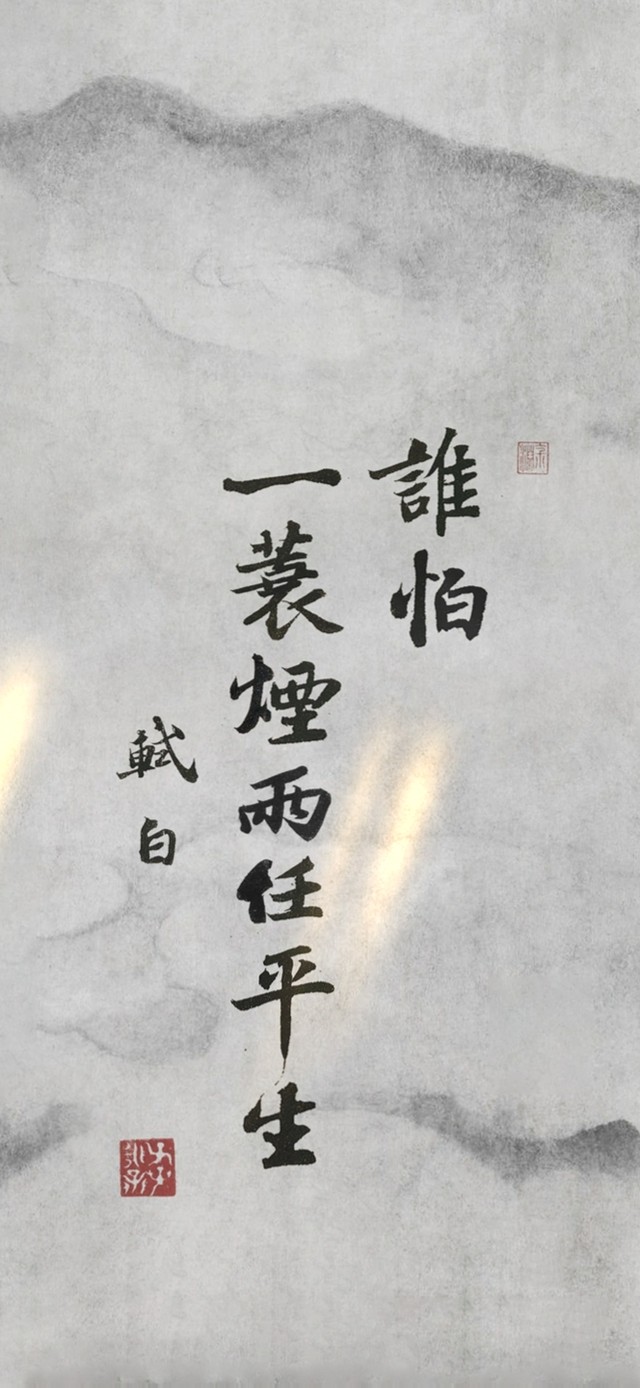 誰怕
一蓑煙雨任平生
軾白